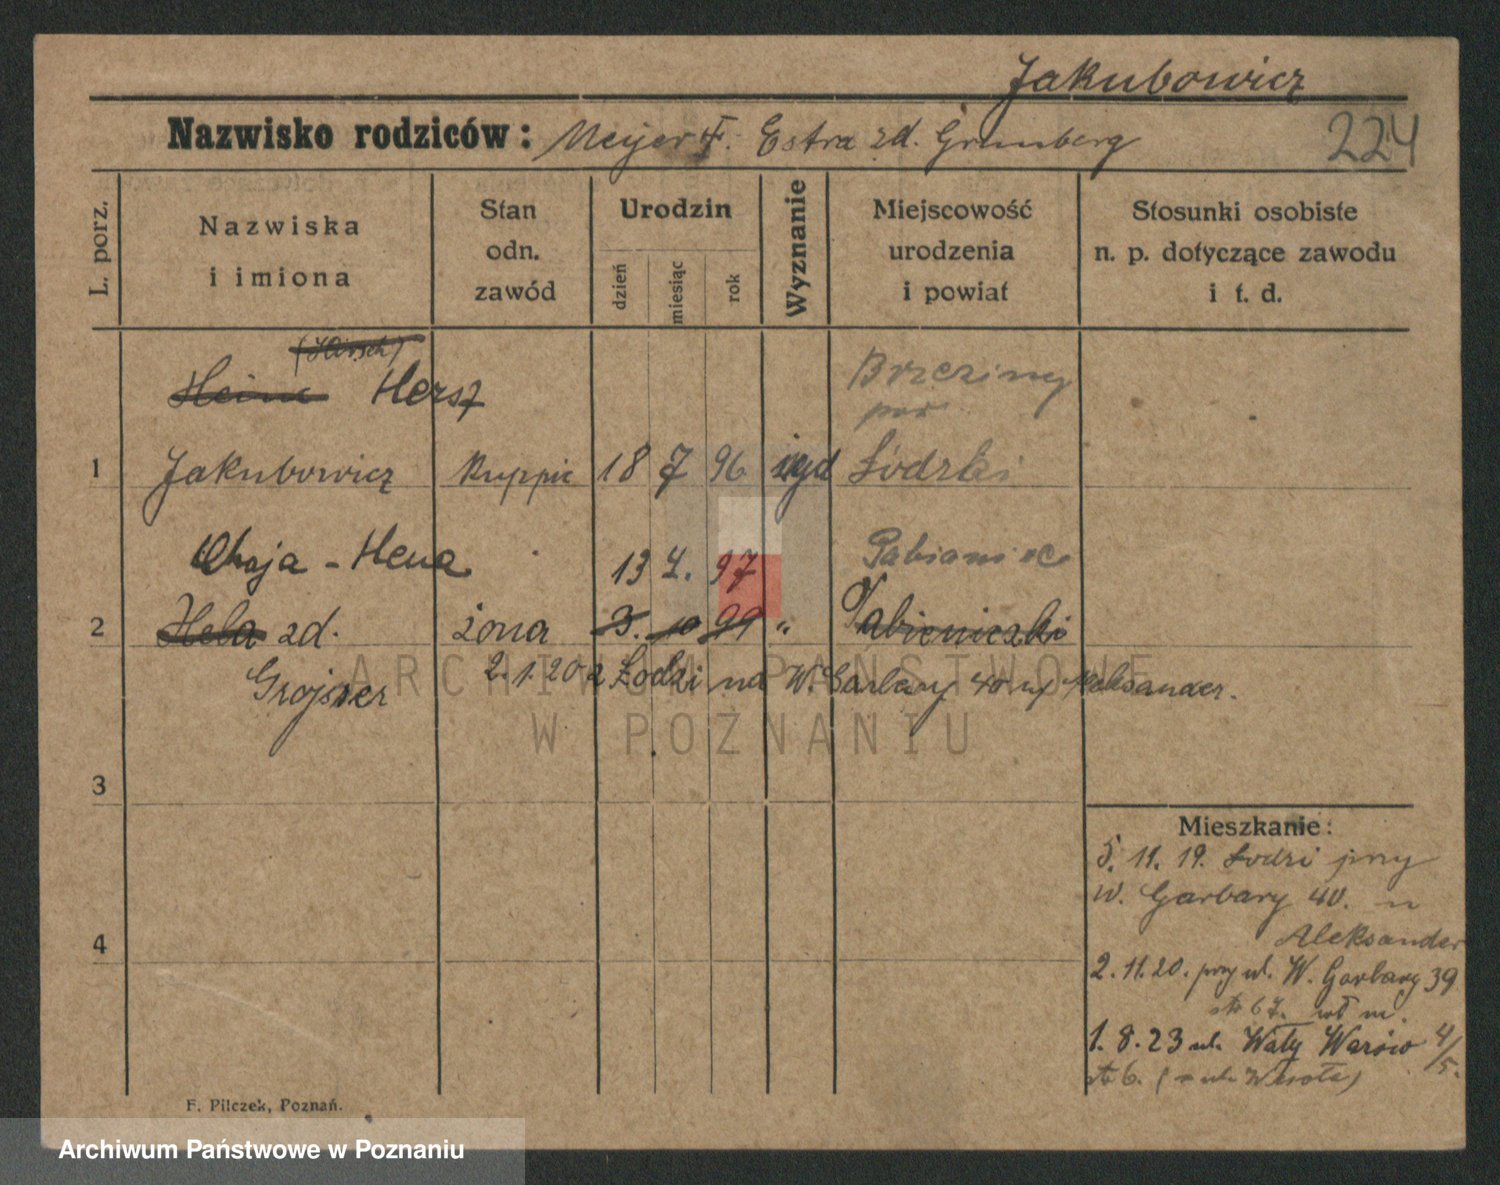 Jakubowicz
Nazwisko rodziców: Meijer Estra zd. Grünberg
224
L. porz.
Nazwiska i imiona
Stan odn. zawód
Urodzin
dzień
miesiąc
rok
Wyznanie
Miejscowość urodzenia i powiat
Stosunki osobiste n. p. dotyczące zawodu i t. d.
(Hirsch)
Heine Hersz
Brzeziny
pow
1 Jakubowicz kuppic 18 7 96 żyd Łódzki
Chaja - Hena 13 4. 97 Pabianice
2 Hela zd. żona 3. 10 99 " Pabienicki
Grojser 2.1.20 z Łodzi na W. Garbary 40 u Aleksander.
3
Mieszkanie:
5. 11. 19. Łodzi przy
W. Garbary 40. u
4
Aleksander
2. 11. 20. przy ul. W. Garbary 39
1. 8. 23 ul. Wały 4/5.
6.
F. Pilczek, Poznań.
ARCHIWUM PAŃSTWOWE
W POZNANIU
Archiwum Państwowe w Poznaniu